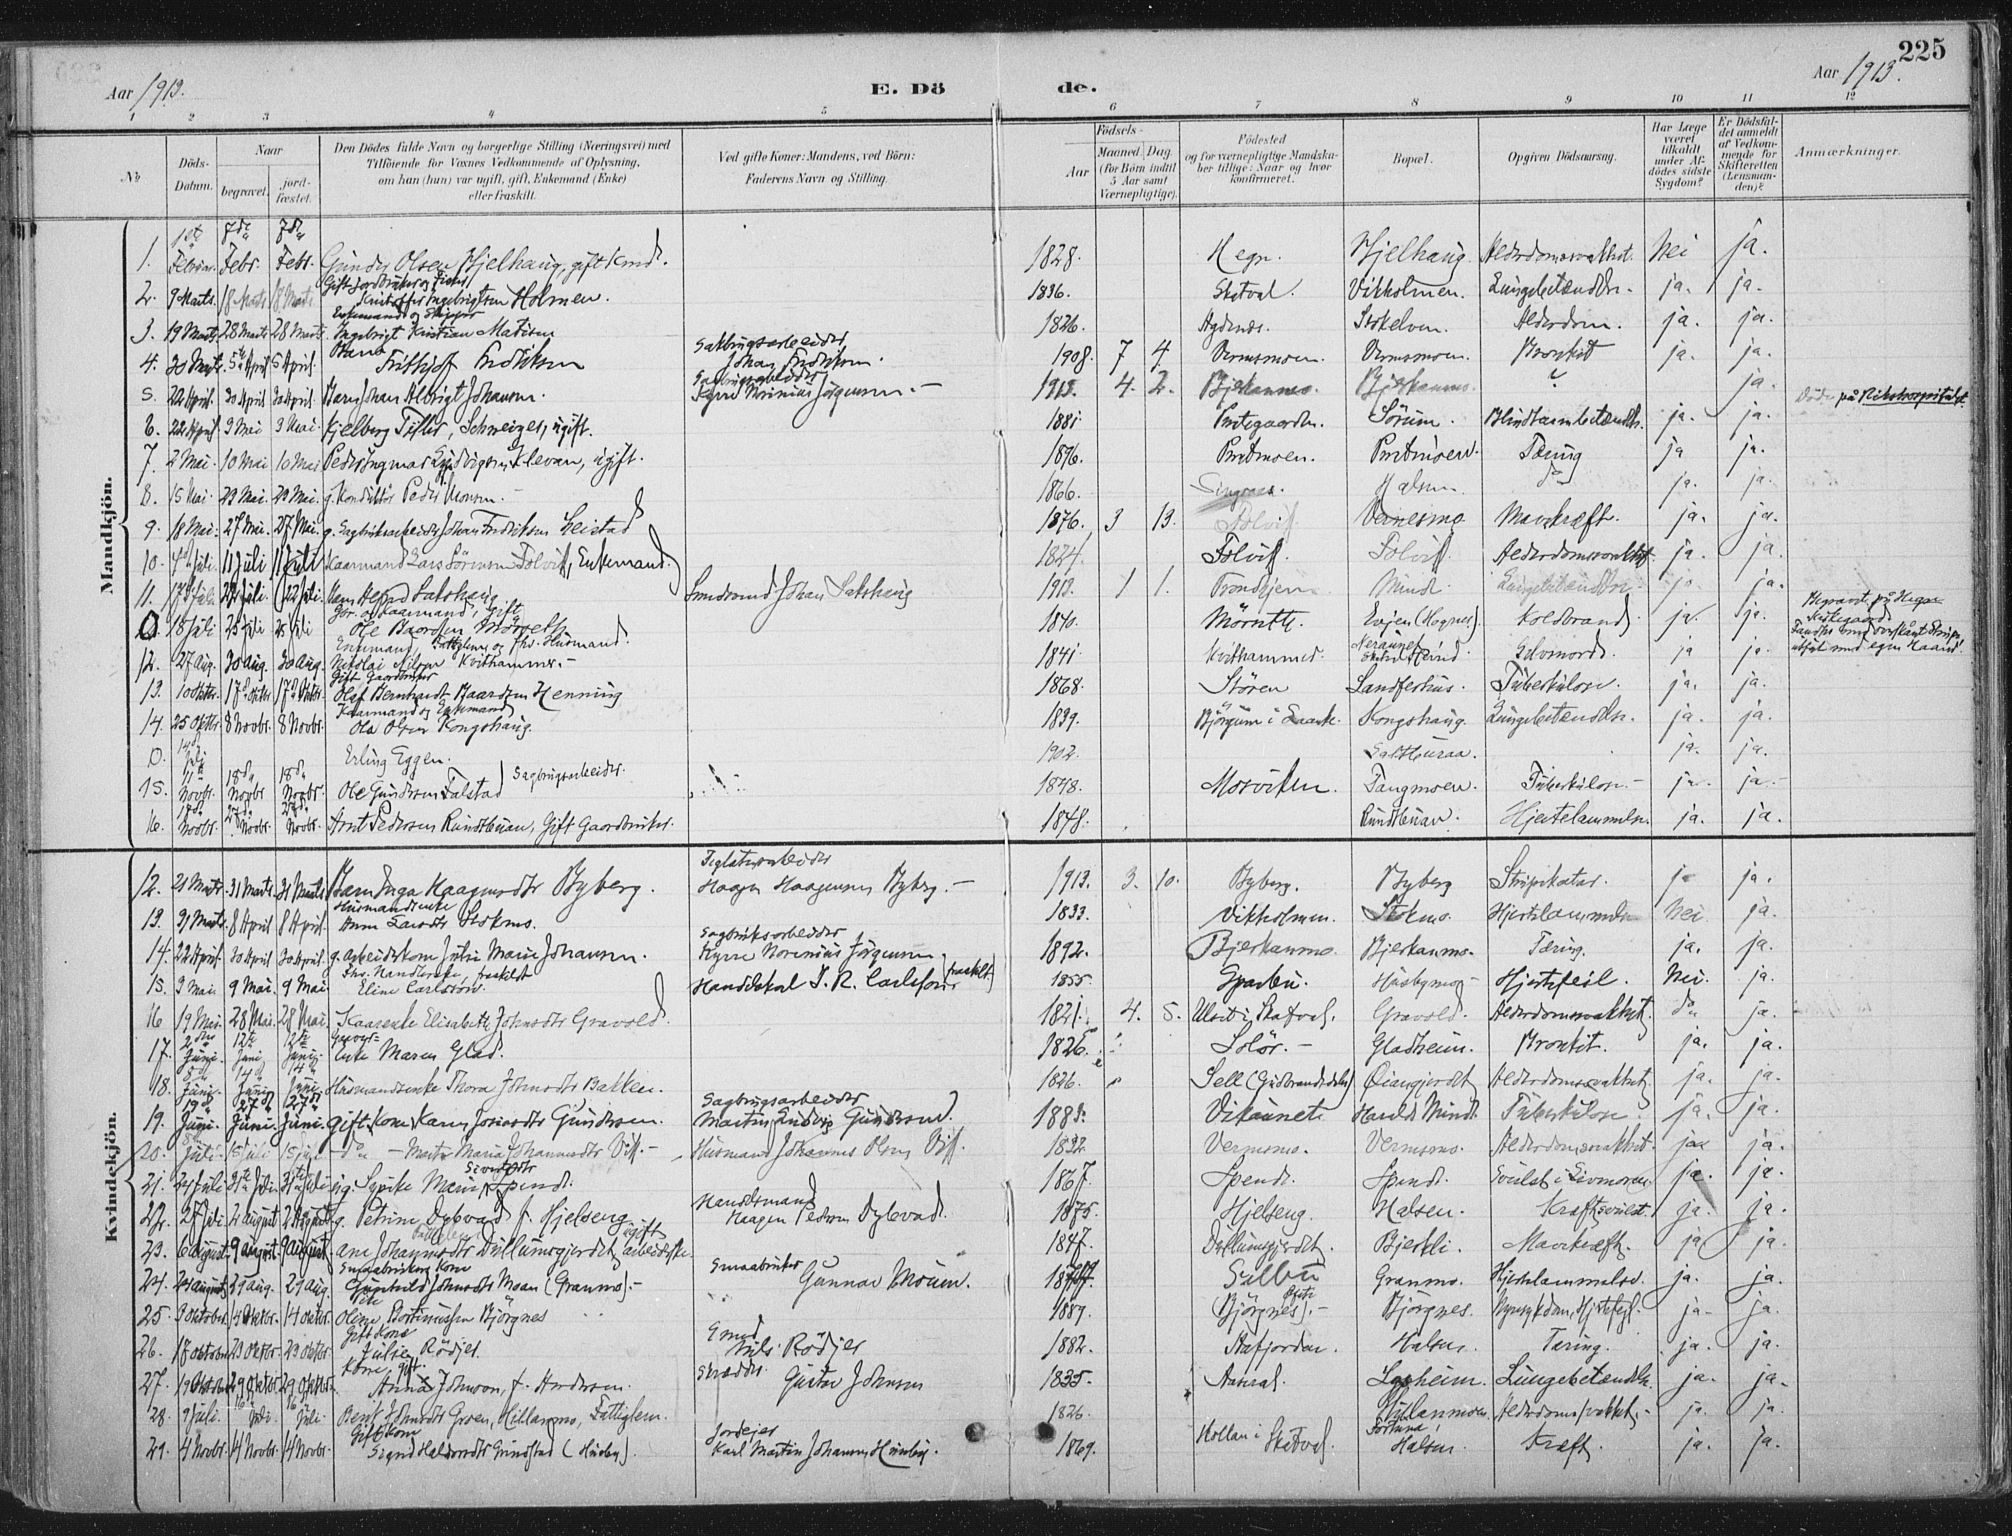 225
Aar 1913.
E. Döde.
Aar 1913.
1 2 3 4 5 6 7 8 9 10 11 12
No
Döds-Datum.
Naar
begravet.
jord-fæstet.
Den Dödes fulde Navn og borgerlige Stilling (Næringsvei) med Tilföiende for Voxnes Vedkommende af Oplysning, om han (hun) var ugift, gift, Enkemand (Enke) eller fraskilt.
Ved gifte Koner: Mandens, ved Börn: Faderens Navn og Stilling.
Födsels-
Aar
Maaned Dag
(for Börn indtil 5 Aar samt Værnepligtige).
Födested og for værnepligtige Mandskaber tillige: Naar og hvor konfirmeret.
Bopæl.
Opgiven Dödsaarsag.
Har Læge været tilkaldt under Afdödes sidste Sygdom?
Er Dödsfaldet anmeldt af Vedkommende for Skifteretten (Lensmanden)?
Anmærkninger.
Mandkjön.
1. 1ste Februar. 7de Febr. 7de Febr. Gunder Olsen Hjelhaug, gift 1828. Hegra. Hjelhaug. Alderdomssvakhet. Nei ja.
2. 9 Marts. 18 Marts 18 Marts Gift Jordbruker og Fisker Kristoffer Ingebrigtsen Holmen. 1836. Skatval. Vikholmen. Lungebetændelse. ja. ja.
3. 19 Marts 28 Marts 28 Marts Enkemand og Skipper Ingebrigt Kristian Matisen 1826. Agdenes. Stokelven. Alderdom. ja. ja.
4. 30 Marts 5te April 5 April. Barn Frithjof Fredriksen Sagbrugsarbeider Johan Fredriksen. 1908. 7 4. Vernesmoen. Vernesmoen. Bronkit ja. ja.
5. 22 April. 30 April 30 April. Barn Johan Albrigt Johansen. Sagbrugsarbeider Kyrre Norenius Jörgensen. 1913. 4. 2. Bjerkanmo. Bjerkanmo. ? ja.
6. 22 April 3 Mai 3 Mai. Kjelberg Tiller, Schweizer, ugift. 1881. Prestegaarden. Sörum. Blindtarmbetændelse. ja. ja. Död på Rikshospitalet.
7. 2 Mai. 10 Mai 10 Mai Peder Ingmar Ludvigsen Klevan, ugift. 1896. Prestmoen. Prestmoen. Tæring ja ja.
8. 15 Mai. 23 Mai. 23 Mai. g. Konduktör Peder Monsen. 1866. Halsen. do ja. ja.
9. 18 Mai. 27 Mai. 27 Mai. g. Sagbruksarbeider Johan Fredriksen Leistad 1876. 3 13. Vernesmo. Mavekræft. ja. ja.
10. 7de Juli. 11 Juli 11 Juli Kaarmand Lars Sörensen Folvik, Enkemand. 1824. Folvik. Folvik. Alderdomssvakhet. ja. ja.
11. 17de Juli 22 Juli. 22 Juli. Hans Alfred Lakshaug Smedsvend Johan Lakshaug 1913. 1 1. Trondhjem. Minde. Lungebetændelse. ja. ja.
0 18 Juli 25 Juli 25 Juli Gbr. og Kaarmand, gift Ole Baardsen Mörseth 1840. Mörseth. Evjen (Hognes). Koldbrand. ja. ja. Begravet på Hegra Kirkegaard.
12. 27 Aug. 30 Aug. 30 Aug. Enkemand, Fattiglem og fhv. Husmand. Nikolai Nilsen Kvithammer. 1841. Kvithammer. Selvmord. ja ja. Fandtes med overskåret Strupe utført med egen Haand.
13. 10 Oktbr. 17de Oktbr 17de Oktbr. Gift Gaardbruker Olaf Bernhardt Baardsen Henning 1868. Stören Sandferhus. Tuberkulose. ja. ja.
14. 25 Oktbr. 8 Novbr. 8 Novbr. Kaarmand og Enkemand Ola Olsen Kongshaug. 1839. Björgum i Laanke. Kongshaug. Lungebetændelse. ja. ja.
0. 14de Juli Erling Eggen. 1902. ja. ja.
15. 11te Novbr. 18de Novbr 18de Novbr. Ole Gundersen Falstad Sagbrugsarbeider. 1848. Mosviken. Tangmoen. Tuberkulose. ja. ja.
16. 17de Novbr. 27de Novbr. 27de Novbr. Arnt Pedersen Rundhauan, Gift Gaardbruker. 1848. Rundhauan. Hjertelammelse. ja. ja.
Kvindekjön.
12. 21 Marts. 31 Marts. 31 Marts Barn Inga Haagensdtr Byberg. Teglverksarbeider Haagen Haagensen Byberg. 1913. 3. 10. Byberg. Byberg Strupekatar. ja ja.
13. 31 Marts. 8 April 8 April. Husmandsenke Anne Larsdtr Stokmo. 1833. Vikholmen. Stokmo. Hjertelammelse Nei. ja.
14. 22 April. 30 April 30 April. g. arbeiderkone Julie Marie Johansen. Sagbruksarbeider Kyrre Norenius Jörgensen. 1892. Bjerkanmo. Bjerkanmo. Tæring. ja. ja.
15. 3 Mai. 9 Mai. 9 Mai. Fhv. Handlerske, fraskilt Eline Carlsson. Handelskarl I. R. Carlsson (fraskilt) 1855. Sparbu. Husbymo. Hjertefeil. Nei. ja.
16 19 Mai. 28 Mai. 28 Mai. Kaarenke Elisabeth Johnsdtr Gravold. 1821. 4. 5. Ulset i Skatval. Gravold. Alderdomssvakhet. do ja.
17. 2den Juni. 12te Juni 12te Juni. Enke Maren Glad. 1826. Solör. Gladheim. Bronkit. ja. ja.
18. 5te Juni. 14de Juni. 14de Juni. Husmandsenke Thora Johnsdtr Bakken. 1826. Sell (Gudbrandsdalen) Öiangjerdet Alderdomssvakhet. ja. ja.
19. 19de Juni. 27de Juni. 27de Juni. gift Kone Karen Jonasdtr Gundersen. Sagbrugsarbeider Martin Ludvig Gundersen. 1883. Vikaunet. Harald Minde. Tuberkulose. ja. ja.
20. 8de Juli. 15 Juli 15 Juli do Marta Maria Johannesdtr Vik. Husmand Johannes Olsen Vik. 1832 Vernesmo. Vernesmo. Alderdomssvakhet. ja. ja.
21. 24 Juli 31te Juli 31te Juli ug. Marie Sivertsdtr Spend. 1867. Spend. Spend. Svulst i Livmoren. ja. ja.
22. 27 Juli 2 August 2 August g. Petrine Dybvad f. Hjelseng. Handelsmand Haagen Pedersen Dybvad. 1875. Hjelseng. Halsen. Kræftsvulst. ja. ja.
23. 6 August. 9 August. 9 August. Ane Johannesdtr Dullumsgjerdet, ugift arbeiderske. 1847. Dullumsgjerdet. Bjerkli. Mavekræft. ja. ja.
24. 24 August. 29 Aug. 29 Aug. Smaabrukers Kone Johnsdtr Moan (Granmo). Smaabruker Gunnar Moum. Selbu Granmo. Hjertelammelse. ja. ja.
25. 9 Oktober 14 Oktbr. 14 Oktbr. Pike Oline Bortinusdtr Björgnes 1887. (Björgnes). Björgnes. Nyresykdom, Hjertefeil. ja. ja.
26. 18 Oktober 23 Oktbr 23 Oktbr Gift Kone Julie Rödjer. Smed Nils Rödjer 1882. Aafjorden. Halsen. Tæring. ja. ja.
27. 19 Oktober 29 Oktbr 29 Oktbr. Kone gift. Anna Johnson, f. Andersen. Skrædder Gustav Johnson 1835. Aaneral. Lerheim. Lungebetændelse. ja. ja.
28. 9 Juli. 16 Juli 16 Juli. Berit Johnsdtr Groen, Hillanmo, Fattiglem. 1826. Hillanmoen. Alderdomssvakhet. ja. ja.
29. 4 Novbr. 14 Novbr. 14 Novbr. Gift Kone Sigrid Halvorsdtr Grindstad (Husby). Jordeier Karl Martin Johansen Husby. 1869. Hollan i Skatval. Fortuna, Halsen. Kræft. ja. ja.